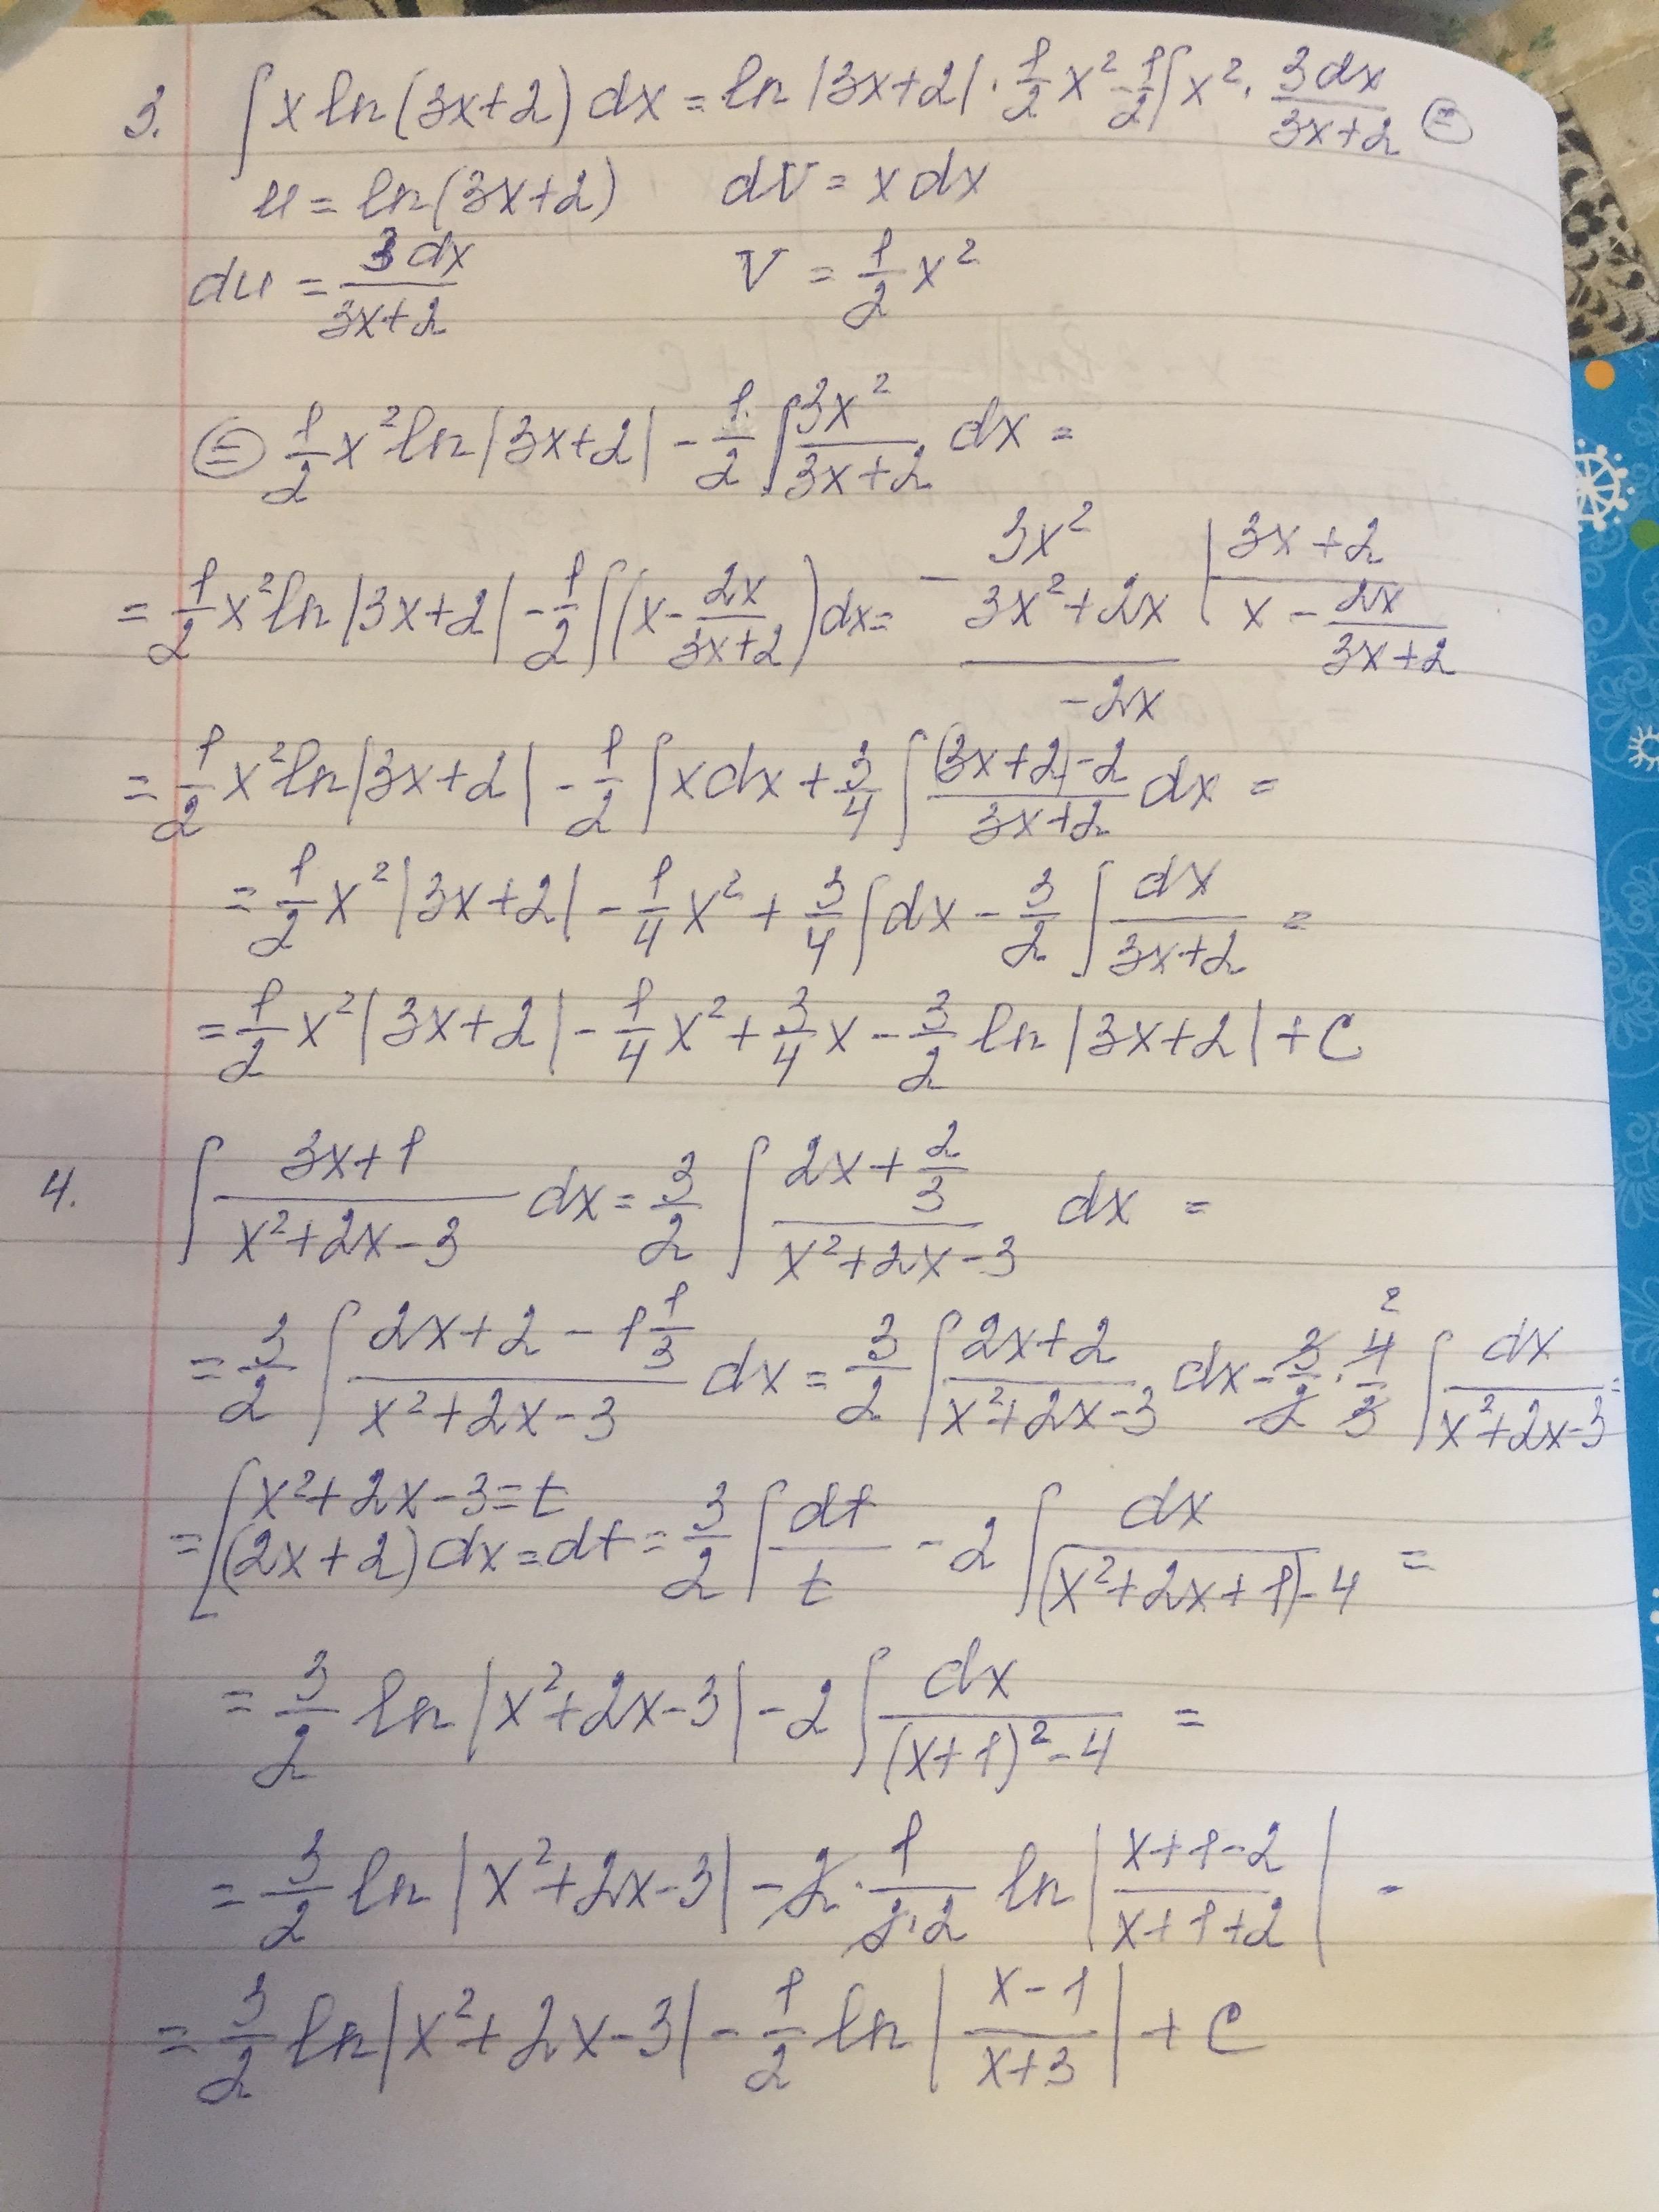 3. ∫ x ln(3x+2) dx = ln|3x+2| · 1/2 x² - 1/2 ∫ x² · 3dx/(3x+2) ⊜
u = ln(3x+2) dV = x dx
du = 3dx/(3x+2) V = 1/2 x²
⊜ 1/2 x² ln|3x+2| - 1/2 ∫ 3x²/(3x+2) dx =
= 1/2 x² ln|3x+2| - 1/2 ∫ (x - 2x/(3x+2)) dx =
- 3x² | 3x+2
3x²+2x | x - 2x/(3x+2)
-2x
= 1/2 x² ln|3x+2| - 1/2 ∫ x dx + 3/4 ∫ ((3x+2)-2)/(3x+2) dx =
= 1/2 x² |3x+2| - 1/4 x² + 3/4 ∫ dx - 3/2 ∫ dx/(3x+2) =
= 1/2 x² |3x+2| - 1/4 x² + 3/4 x - 3/2 ln|3x+2| + C
4. ∫ (3x+1)/(x²+2x-3) dx = 3/2 ∫ (2x + 2/3)/(x²+2x-3) dx =
= 3/2 ∫ (2x+2 - 1 1/3)/(x²+2x-3) dx = 3/2 ∫ (2x+2)/(x²+2x-3) dx - 3/2 · 4/3 2 ∫ dx/(x²+2x-3) =
= [ x²+2x-3 = t
(2x+2)dx = dt = 3/2 ∫ dt/t - 2 ∫ dx/((x²+2x+1)-4) =
= 3/2 ln|x²+2x-3| - 2 ∫ dx/((x+1)²-4) =
= 3/2 ln|x²+2x-3| - 2 · 1/(2·2) ln|(x+1-2)/(x+1+2)| -
= 3/2 ln|x²+2x-3| - 1/2 ln|(x-1)/(x+3)| + C